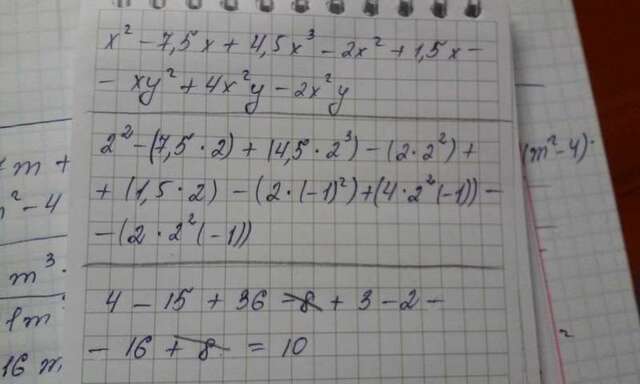 x² - 7,5x + 4,5x³ - 2x² + 1,5x -
- xy² + 4x²y - 2x²y
2² - (7,5 · 2) + (4,5 · 2³) - (2 · 2²) +
+ (1,5 · 2) - (2 · (-1)²) + (4 · 2² (-1)) -
- (2 · 2² (-1))
4 - 15 + 36 - 8 + 3 - 2 -
- 16 + 8 = 10
m +
² - 4
m³ ·
m
16
(m² - 4) ·